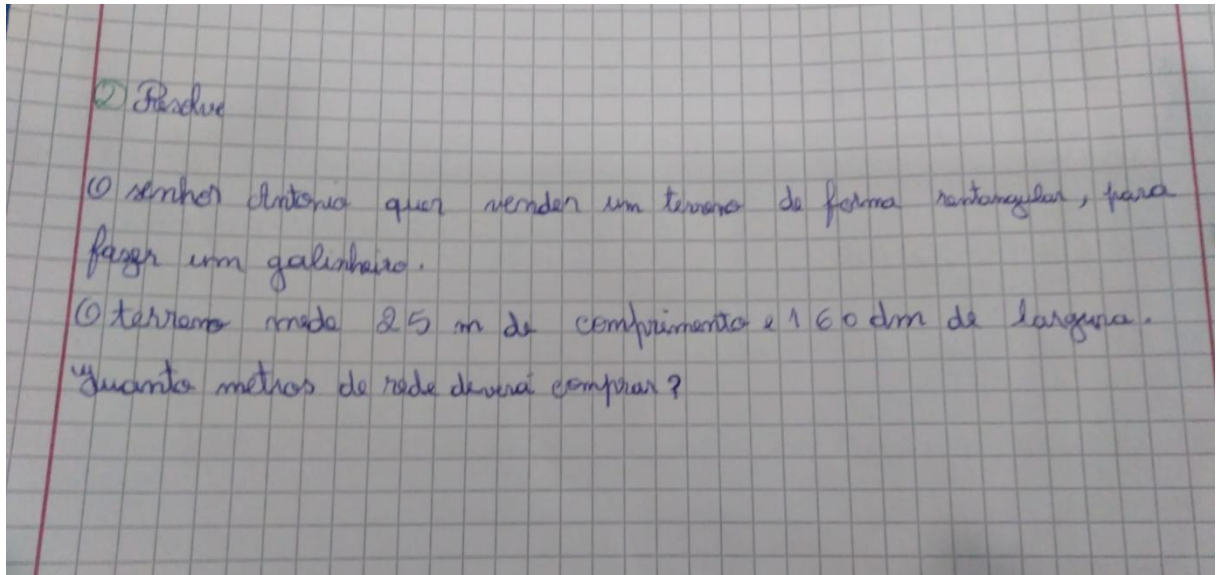 ② Resolve
O senhor Antonio quer vender um terreno de forma rentangular, para
fazer um galinheiro.
O terreno mede 25 m de comprimento e 160 dm de largura.
Quanto metros de rede deverá comprar?